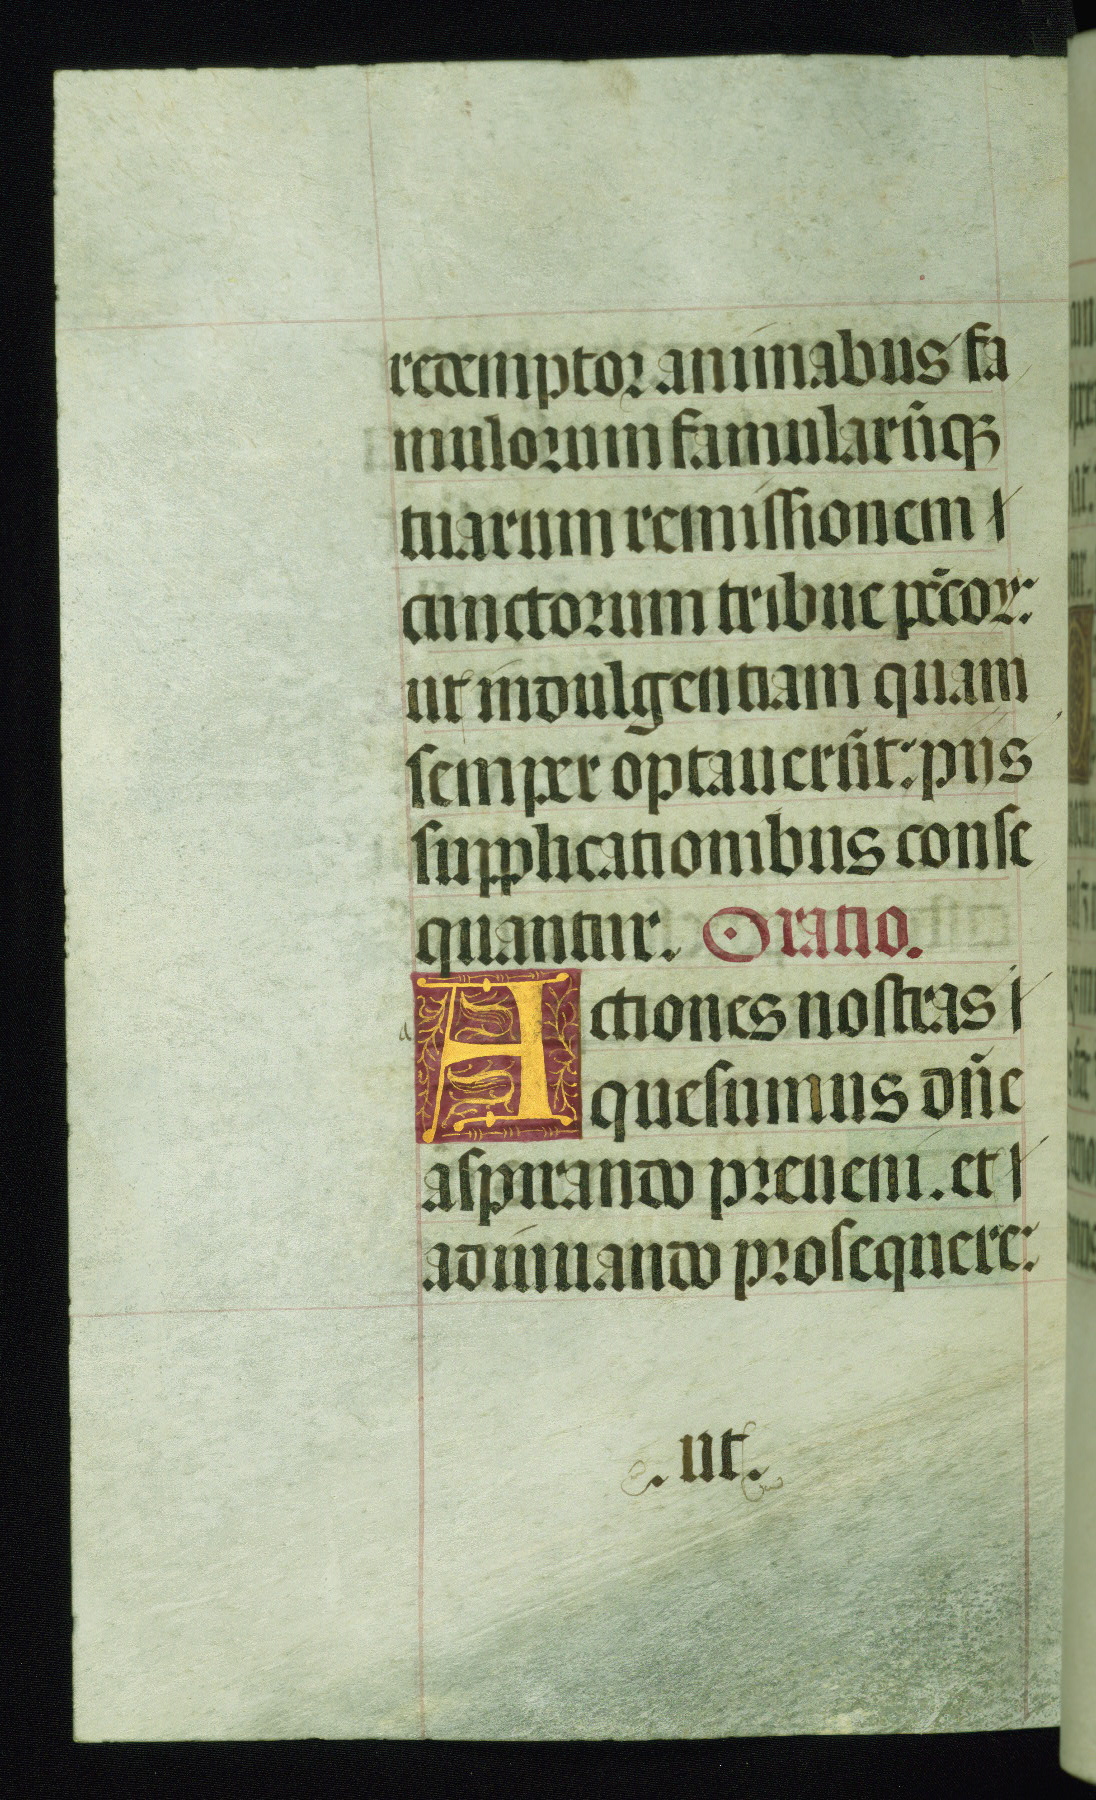 redemptor animabus fa
mulorum famularūqꝫ
tuarum remissionem
cunctorum tribue pc̄cor:
ut indulgentiam quam
semper optauerūt: pijs
supplicationibus conse
quantur. Oratio.
Actiones nostras
quesumus dn̄e
aspirando preueni. et
adiuuando prosequere:
. ut .